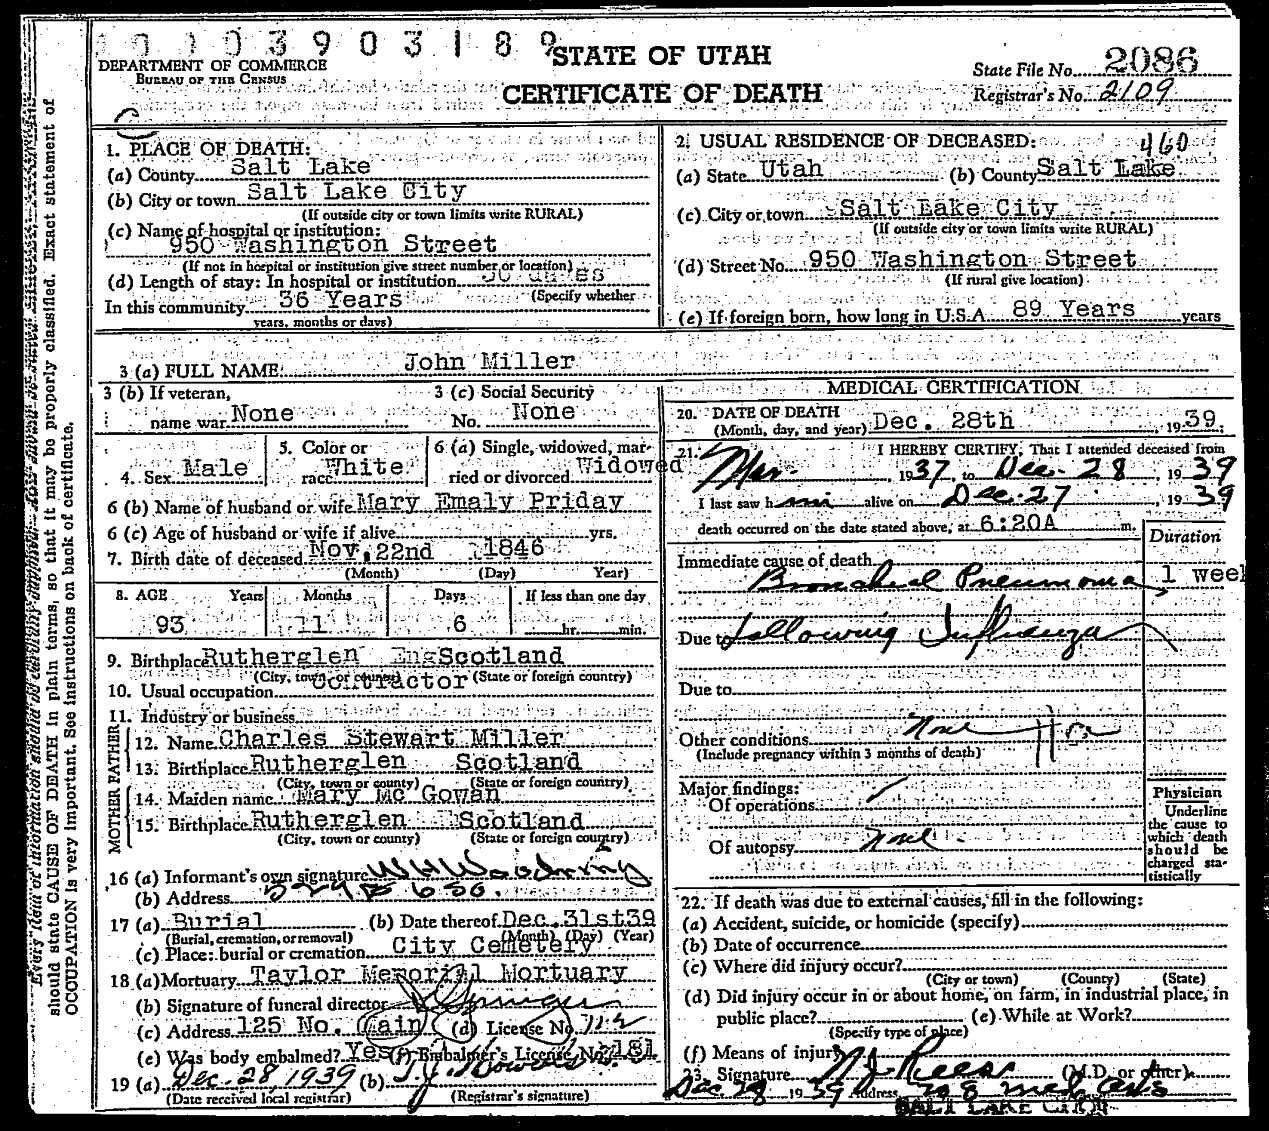 0 3 9 0 3 1 8 9
STATE OF UTAH
CERTIFICATE OF DEATH
DEPARTMENT OF COMMERCE
BUREAU OF THE CENSUS
State File No. 2086
Registrar's No. 2109
1. PLACE OF DEATH:
(a) County Salt Lake
(b) City or town Salt Lake City
(If outside city or town limits write RURAL)
(c) Name of hospital or institution:
950 Washington Street
(If not in hospital or institution give street number or location)
(d) Length of stay: In hospital or institution
(Specify whether
In this community 36 Years
years, months or days)
2. USUAL RESIDENCE OF DECEASED: 460
(a) State Utah (b) County Salt Lake
(c) City or town Salt Lake City
(If outside city or town limits write RURAL)
(d) Street No. 950 Washington Street
(If rural give location)
(e) If foreign born, how long in U.S.A. 89 Years years
3 (a) FULL NAME: John Miller
3 (b) If veteran,
name war None
3 (c) Social Security
No. None
4. Sex Male
5. Color or
race White
6 (a) Single, widowed, mar-
ried or divorced Widowed
6 (b) Name of husband or wife Mary Emaly Priday
6 (c) Age of husband or wife if alive yrs.
7. Birth date of deceased Nov. 22nd 1846
(Month) (Day) Year)
8. AGE Years Months Days If less than one day
93 11 6 hr. min.
9. Birthplace Rutherglen Eng Scotland
(City, town, or county) (State or foreign country)
10. Usual occupation Contractor
11. Industry or business
FATHER
12. Name Charles Stewart Miller
13. Birthplace Rutherglen Scotland
(City, town or county) (State or foreign country)
MOTHER
14. Maiden name Mary Mc Gowan
15. Birthplace Rutherglen Scotland
(City, town or county) (State or foreign country)
16 (a) Informant's own signature
(b) Address 529 E 6 So.
17 (a) Burial (b) Date thereof Dec. 31st 39
(Burial, cremation, or removal) (Month) (Day) (Year)
(c) Place: burial or cremation City Cemetery
18 (a) Mortuary Taylor Memorial Mortuary
(b) Signature of funeral director
(c) Address 125 No. Main (d) License No. 112
(e) Was body embalmed? Yes (f) Embalmer's License No. 181
19 (a) Dec. 28, 1939 (b)
(Date received local registrar) (Registrar's signature)
MEDICAL CERTIFICATION
20. DATE OF DEATH
(Month, day, and year) Dec. 28th 1939
21. I HEREBY CERTIFY, That I attended deceased from
Mar. 1937, to Dec. 28, 1939
I last saw him alive on Dec. 27, 1939
death occurred on the date stated above, at 6:20A m.
Duration
Immediate cause of death
Bronchial Pneumonia 1 week
Due to following Influenza
Due to
Other conditions None
(Include pregnancy within 3 months of death)
Major findings:
Of operations
Of autopsy None
Physician
Underline
the cause to
which death
should be
charged sta-
tistically
22. If death was due to external causes, fill in the following:
(a) Accident, suicide, or homicide (specify)
(b) Date of occurrence
(c) Where did injury occur?
(City or town) (County) (State)
(d) Did injury occur in or about home, on farm, in industrial place, in
public place? (e) While at Work?
(Specify type of place)
(f) Means of injury
23. Signature (M.D. or other)
Dec. 28 1939 Address
SALT LAKE CITY
should state CAUSE OF DEATH in plain terms, so that it may be properly classified. Exact statement of
OCCUPATION is very important. See instructions on back of certificate.